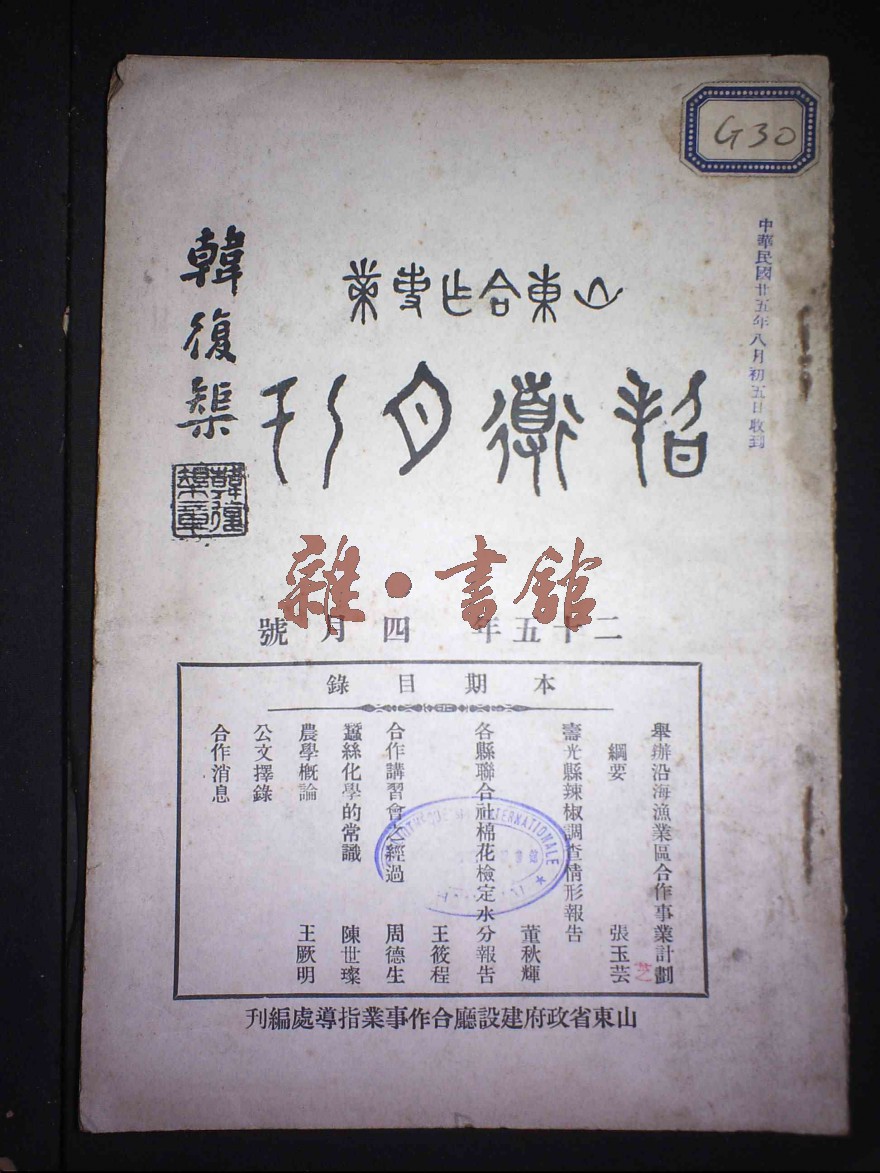 G30
中華民國廿五年八月初五日收到
山東合作事業
指導月刊
韓復榘
韓復榘章
雜·書館
二十五年 四月號
本期目錄
舉辦沿海漁業區合作事業計劃
綱要 張玉芸
芝
壽光縣辣椒調查情形報告
董秋輝
各縣聯合社棉花檢定水分報告
王筱程
合作講習會之經過 周德生
蠶絲化學的常識 陳世璨
農學概論 王厥明
公文擇錄
合作消息
INTERNATIONALE
山東省政府建設廳合作事業指導處編刊